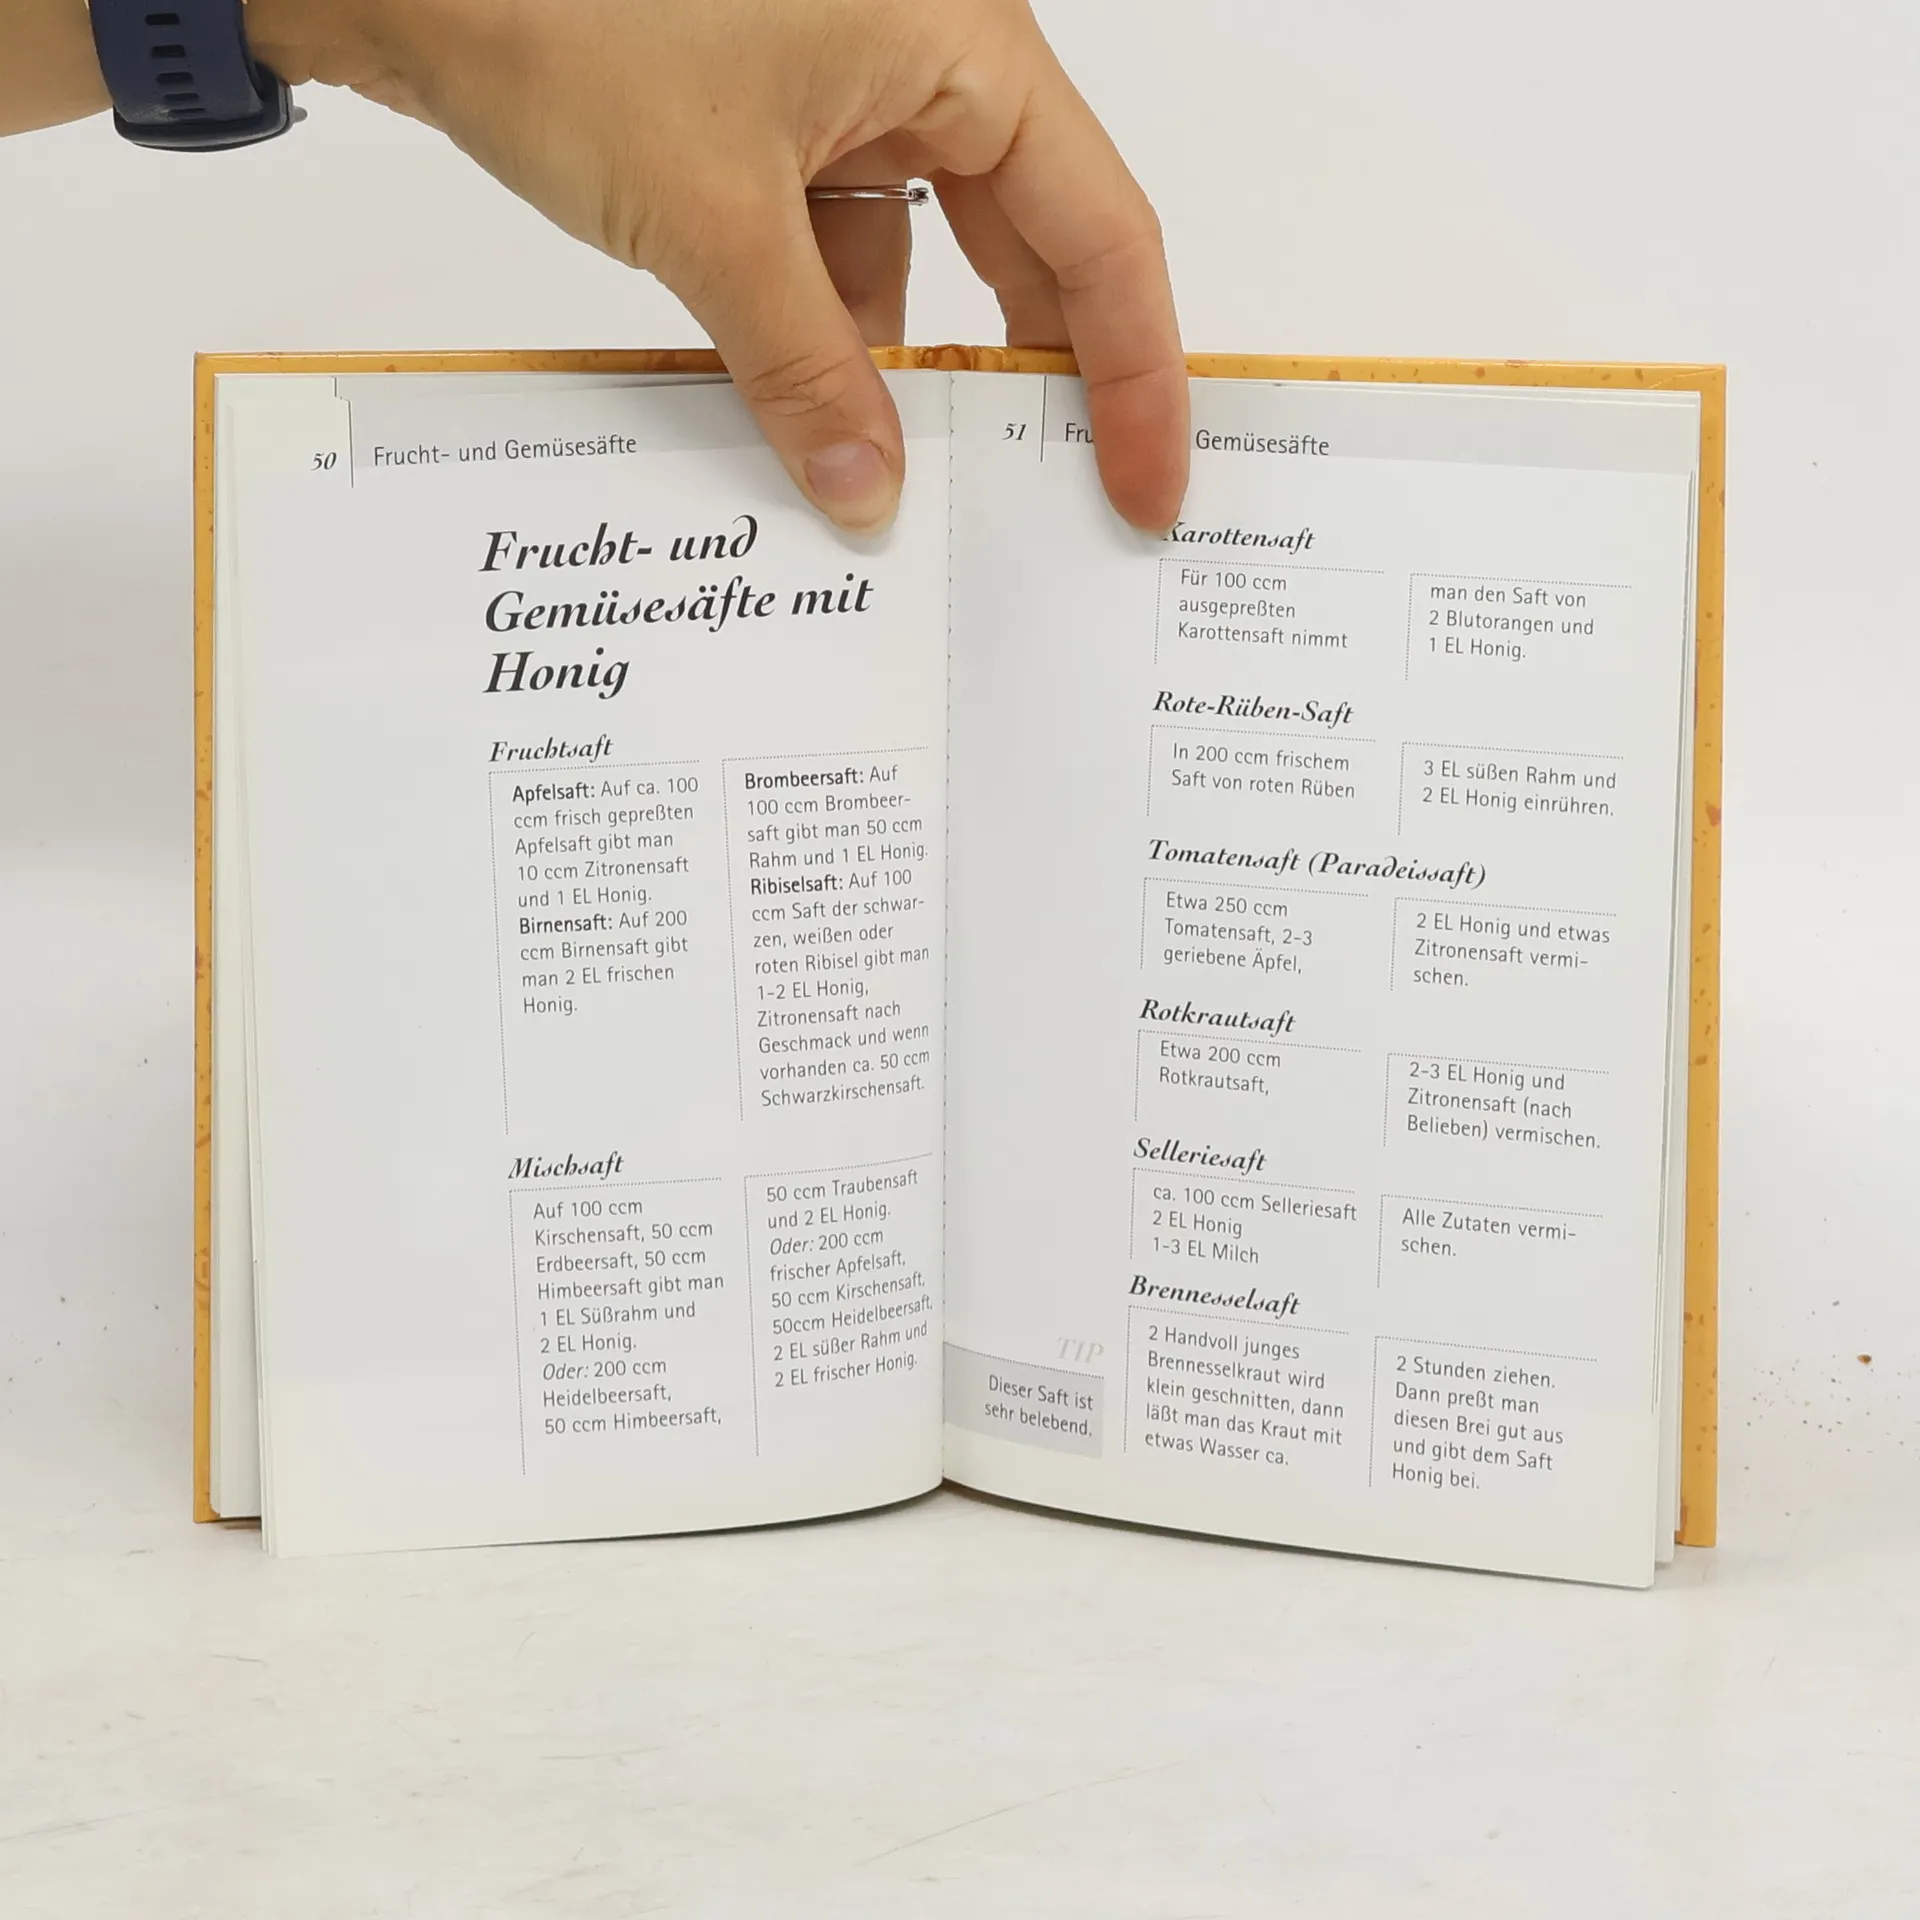 50
Frucht- und Gemüsesäfte
Frucht- und
Gemüsesäfte mit
Honig
Fruchtsaft
Apfelsaft: Auf ca. 100
ccm frisch gepreßten
Apfelsaft gibt man
10 ccm Zitronensaft
und 1 EL Honig.
Birnensaft: Auf 200
ccm Birnensaft gibt
man 2 EL frischen
Honig.
Brombeersaft: Auf
100 ccm Brombeer-
saft gibt man 50 ccm
Rahm und 1 EL Honig.
Ribiselsaft: Auf 100
ccm Saft der schwar-
zen, weißen oder
roten Ribisel gibt man
1-2 EL Honig,
Zitronensaft nach
Geschmack und wenn
vorhanden ca. 50 ccm
Schwarzkirschensaft.
Mischsaft
Auf 100 ccm
Kirschensaft, 50 ccm
Erdbeersaft, 50 ccm
Himbeersaft gibt man
1 EL Süßrahm und
2 EL Honig.
Oder: 200 ccm
Heidelbeersaft,
50 ccm Himbeersaft,
50 ccm Traubensaft
und 2 EL Honig.
Oder: 200 ccm
frischer Apfelsaft,
50 ccm Kirschensaft,
50ccm Heidelbeersaft,
2 EL süßer Rahm und
2 EL frischer Honig.
51
Gemüsesäfte
Karottensaft
Für 100 ccm
ausgepreßten
Karottensaft nimmt
man den Saft von
2 Blutorangen und
1 EL Honig.
Rote-Rüben-Saft
In 200 ccm frischem
Saft von roten Rüben
3 EL süßen Rahm und
2 EL Honig einrühren.
Tomatensaft (Paradeissaft)
Etwa 250 ccm
Tomatensaft, 2-3
geriebene Äpfel,
2 EL Honig und etwas
Zitronensaft vermi-
schen.
Rotkrautsaft
Etwa 200 ccm
Rotkrautsaft,
2-3 EL Honig und
Zitronensaft (nach
Belieben) vermischen.
Selleriesaft
ca. 100 ccm Selleriesaft
2 EL Honig
1-3 EL Milch
Alle Zutaten vermi-
schen.
Brennesselsaft
TIP
Dieser Saft ist
sehr belebend.
2 Handvoll junges
Brennesselkraut wird
klein geschnitten, dann
läßt man das Kraut mit
etwas Wasser ca.
2 Stunden ziehen.
Dann preßt man
diesen Brei gut aus
und gibt dem Saft
Honig bei.